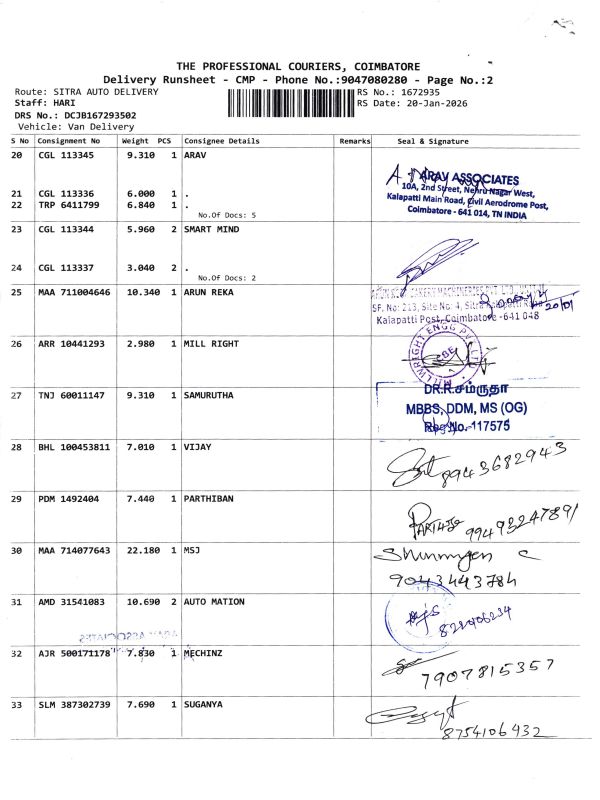 THE PROFESSIONAL COURIERS, COIMBATORE
Delivery Runsheet - CMP - Phone No.:9047080280 - Page No.:2
Route: SITRA AUTO DELIVERY
RS No.: 1672935
Staff: HARI
RS Date: 20-Jan-2026
DRS No.: DCJB167293502
Vehicle: Van Delivery
S No Consignment No Weight PCS Consignee Details Remarks Seal & Signature
20 CGL 113345 9.310 1 ARAV
ARAV ASSOCIATES
10A, 2nd Street, Nehru Nagar West,
Kalapatti Main Road, Civil Aerodrome Post,
Coimbatore - 641 014, TN INDIA
21 CGL 113336 6.000 1 .
22 TRP 6411799 6.840 1 .
No.Of Docs: 5
23 CGL 113344 5.960 2 SMART MIND
24 CGL 113337 3.040 2 .
No.Of Docs: 2
25 MAA 711004646 10.340 1 ARUN REKA
SF. No: 213, Site No: 4, Sitra Kalapatti Road
20/01
Kalapatti Post, Coimbatore -641 048
26 ARR 10441293 2.980 1 MILL RIGHT
MILLWRIGHT ENGG PVT LTD
CBE
27 TNJ 60011147 9.310 1 SAMURUTHA
DR.R.சம்ருதா
MBBS, DDM, MS (OG)
Reg No.-117575
28 BHL 100453811 7.010 1 VIJAY
8943682943
29 PDM 1492404 7.440 1 PARTHIBAN
9949324789
30 MAA 714077643 22.180 1 MSJ
9043443784
31 AMD 31541083 10.690 2 AUTO MATION
32 AJR 500171178 7.830 1 MECHINZ
7907815357
33 SLM 387302739 7.690 1 SUGANYA
8754106932